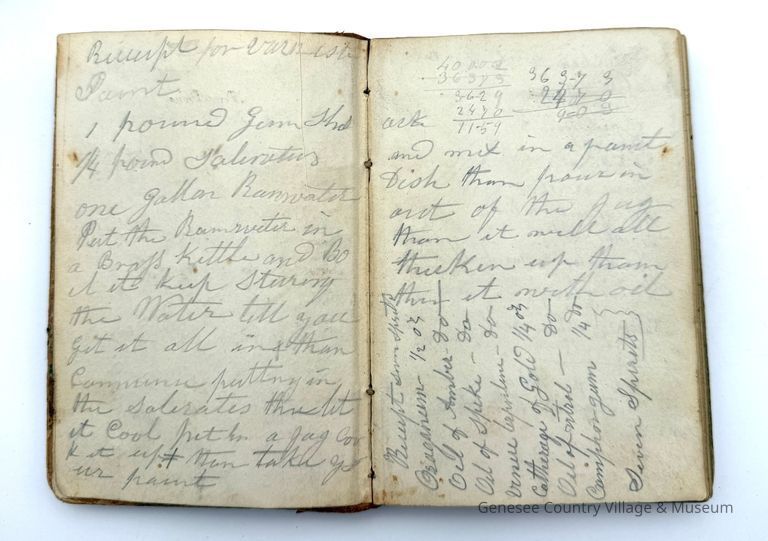 Receipt for Varnish
Paint
1 pound Gum Shel
1/4 pound Saleratus
one gallon Rainwater
Put the Rainwater in
a Brass Kittle and Bo
il it keep stiring
the Water till you
get it all in than
Commence putting in
the Salerates then let
it Cool put in a jug Cor
k it up than take yo
ur paint
40002
36373
3629
2470
1159
36373
2470
and mix in a paint
Dish than pour in
out of the Jug
than it will all
thicken up tham
thin it with oil
Receipt Seven Spirits
Origanum 1/2 oz
Oil of Amber - Do
Oil of Spike - Do
Venice turpentine - Do
of Gold 1/4 oz
Oil of - Do
Camphor gum 1/4 Do
Seven Spirits
Genesee Country Village & Museum